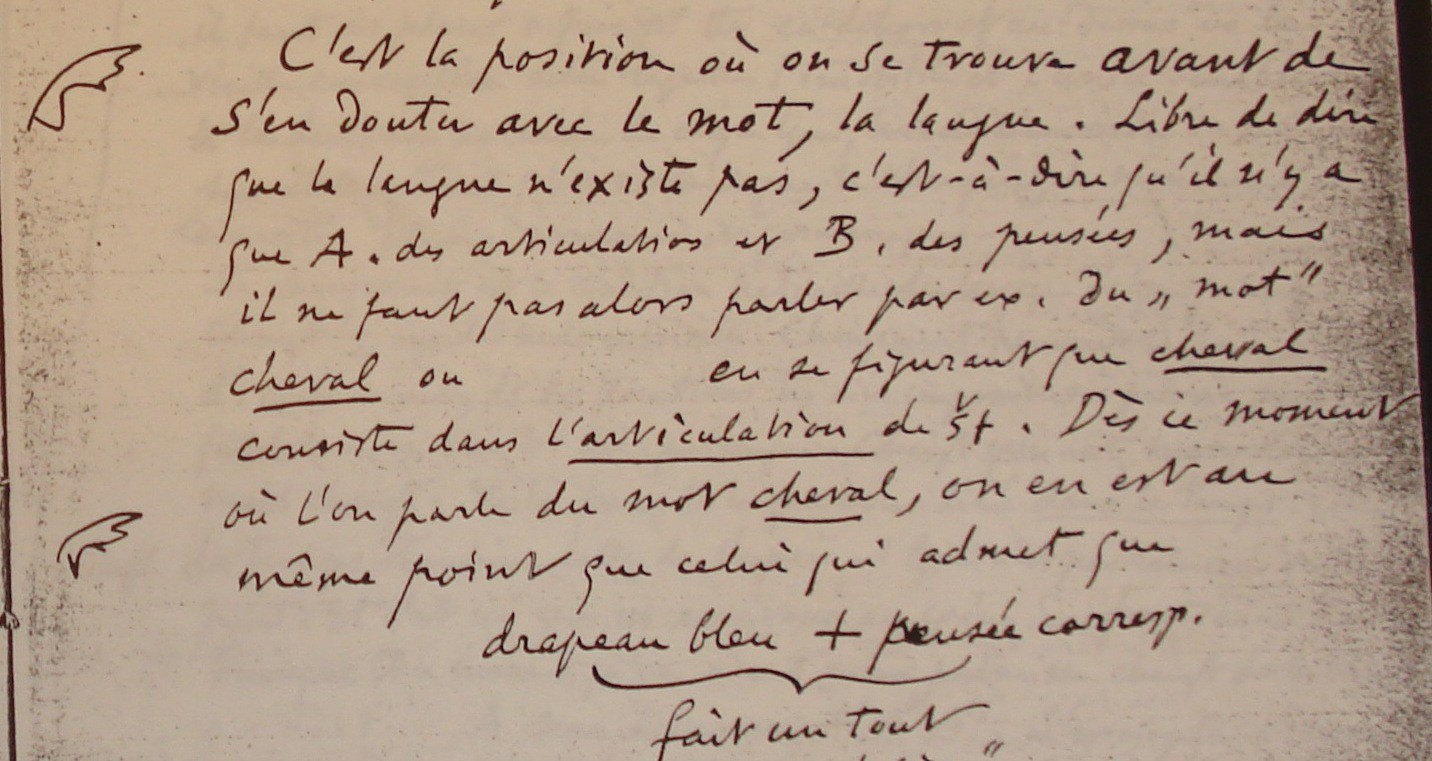 C'est la position où on se trouve avant de
s'en douter avec le mot, la langue. Libre de dire
que la langue n'existe pas, c'est-à-dire qu'il n'y a
que A. des articulatios et B. des pensées, mais
il ne faut pas alors parler par ex. du „ mot"
cheval ou en se figurant que cheval
consiste dans l'articulation de
. Dès ce moment
où l'on parle du mot cheval, on en est au
même point que celui qui admet que
drapeau bleu + pensée corresp.
fait un tout